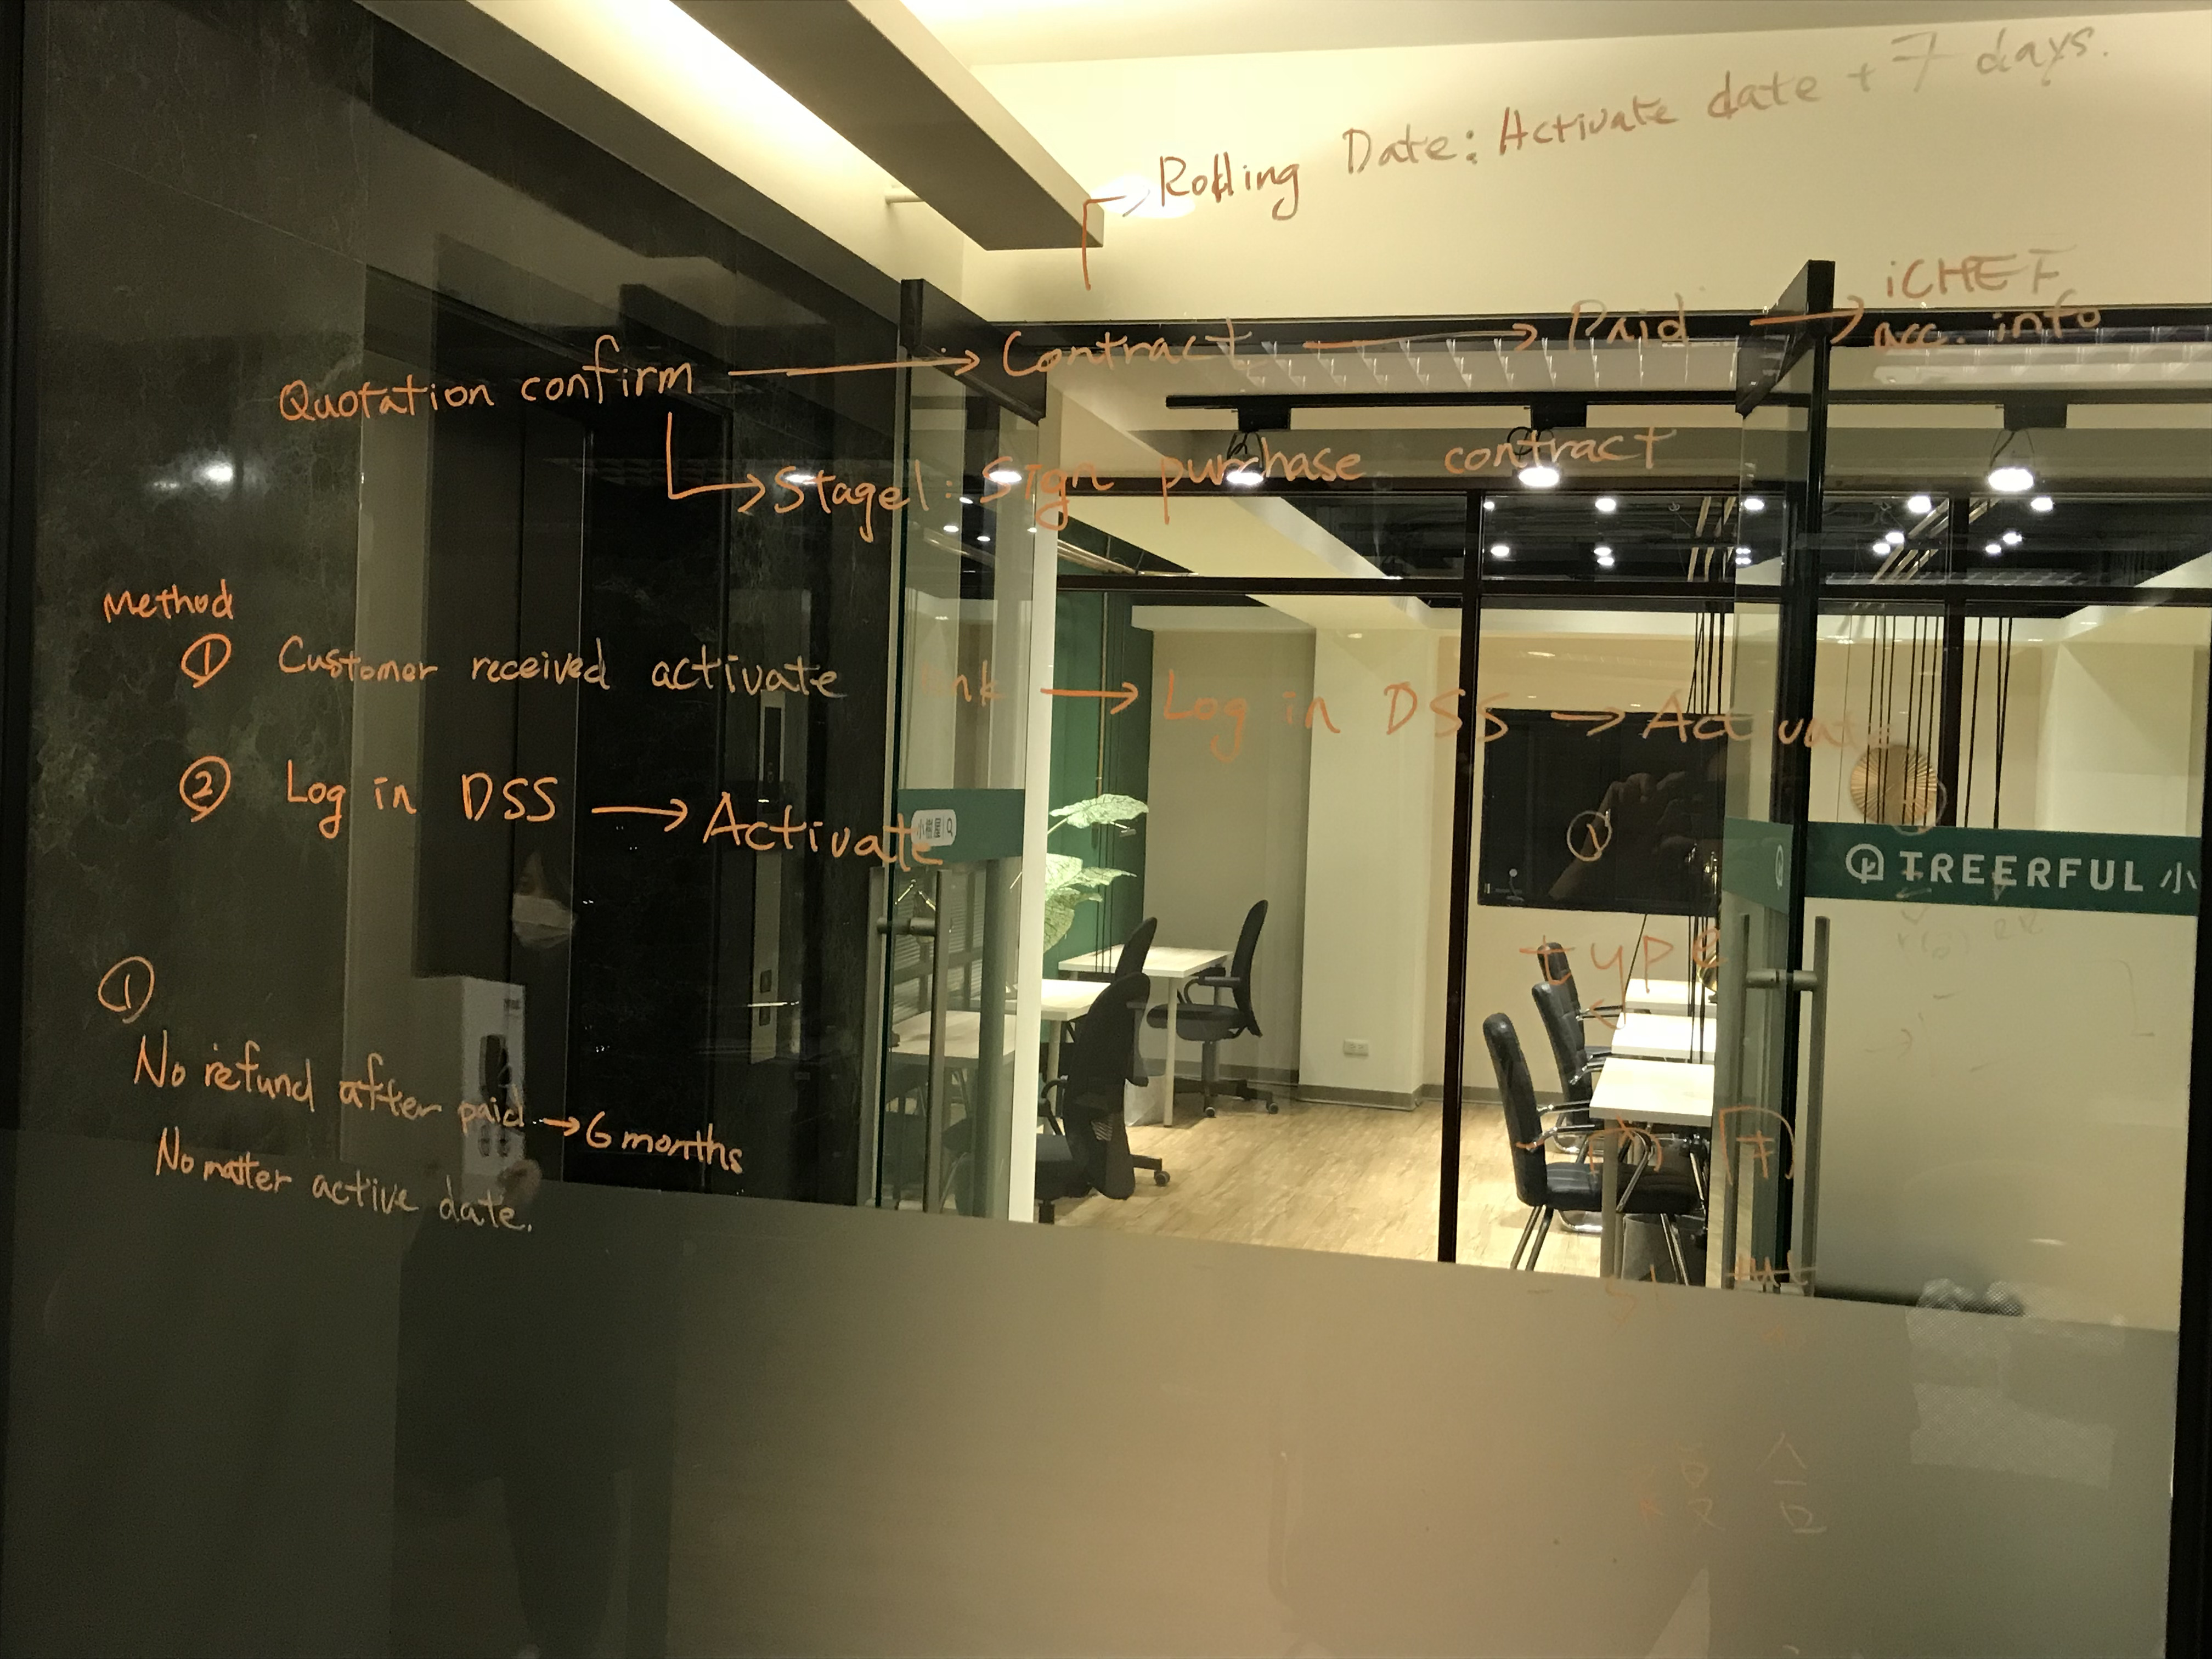 Rolling Date: Activate date + 7 days.
Quotation confirm → Contract → Paid → iCHEF acc. info
Stage1: Sign purchase contract
Method
① Customer received activate link → Log in DSS → Activate
② Log in DSS → Activate
小樹屋
TREERFUL 小
type
①
No refund after paid → 6 months
No matter active date.